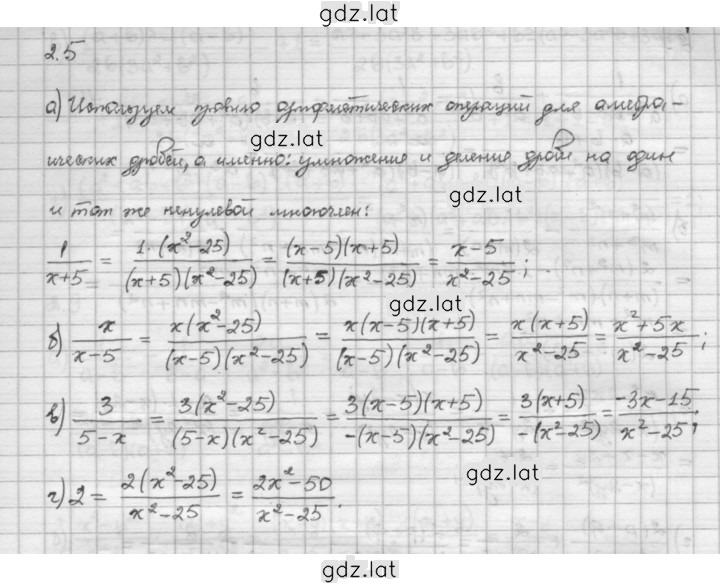 gdz.lat
2.5
а) Используем правило арифметических операций для алгебра-
gdz.lat
ических дробей, а именно: умножение и деление дроби на один
gdz.lat
и тот же ненулевой многочлен:
1/(x+5) = 1·(x²-25)/((x+5)(x²-25)) = (x-5)(x+5)/((x+5)(x²-25)) = (x-5)/(x²-25);
gdz.lat
б) x/(x-5) = x(x²-25)/((x-5)(x²-25)) = x(x-5)(x+5)/((x-5)(x²-25)) = x(x+5)/(x²-25) = (x²+5x)/(x²-25);
в) 3/(5-x) = 3(x²-25)/((5-x)(x²-25)) = 3(x-5)(x+5)/(-(x-5)(x²-25)) = 3(x+5)/(-(x²-25)) = (-3x-15)/(x²-25);
gdz.lat
г) 2 = 2(x²-25)/(x²-25) = (2x²-50)/(x²-25).
gdz.lat